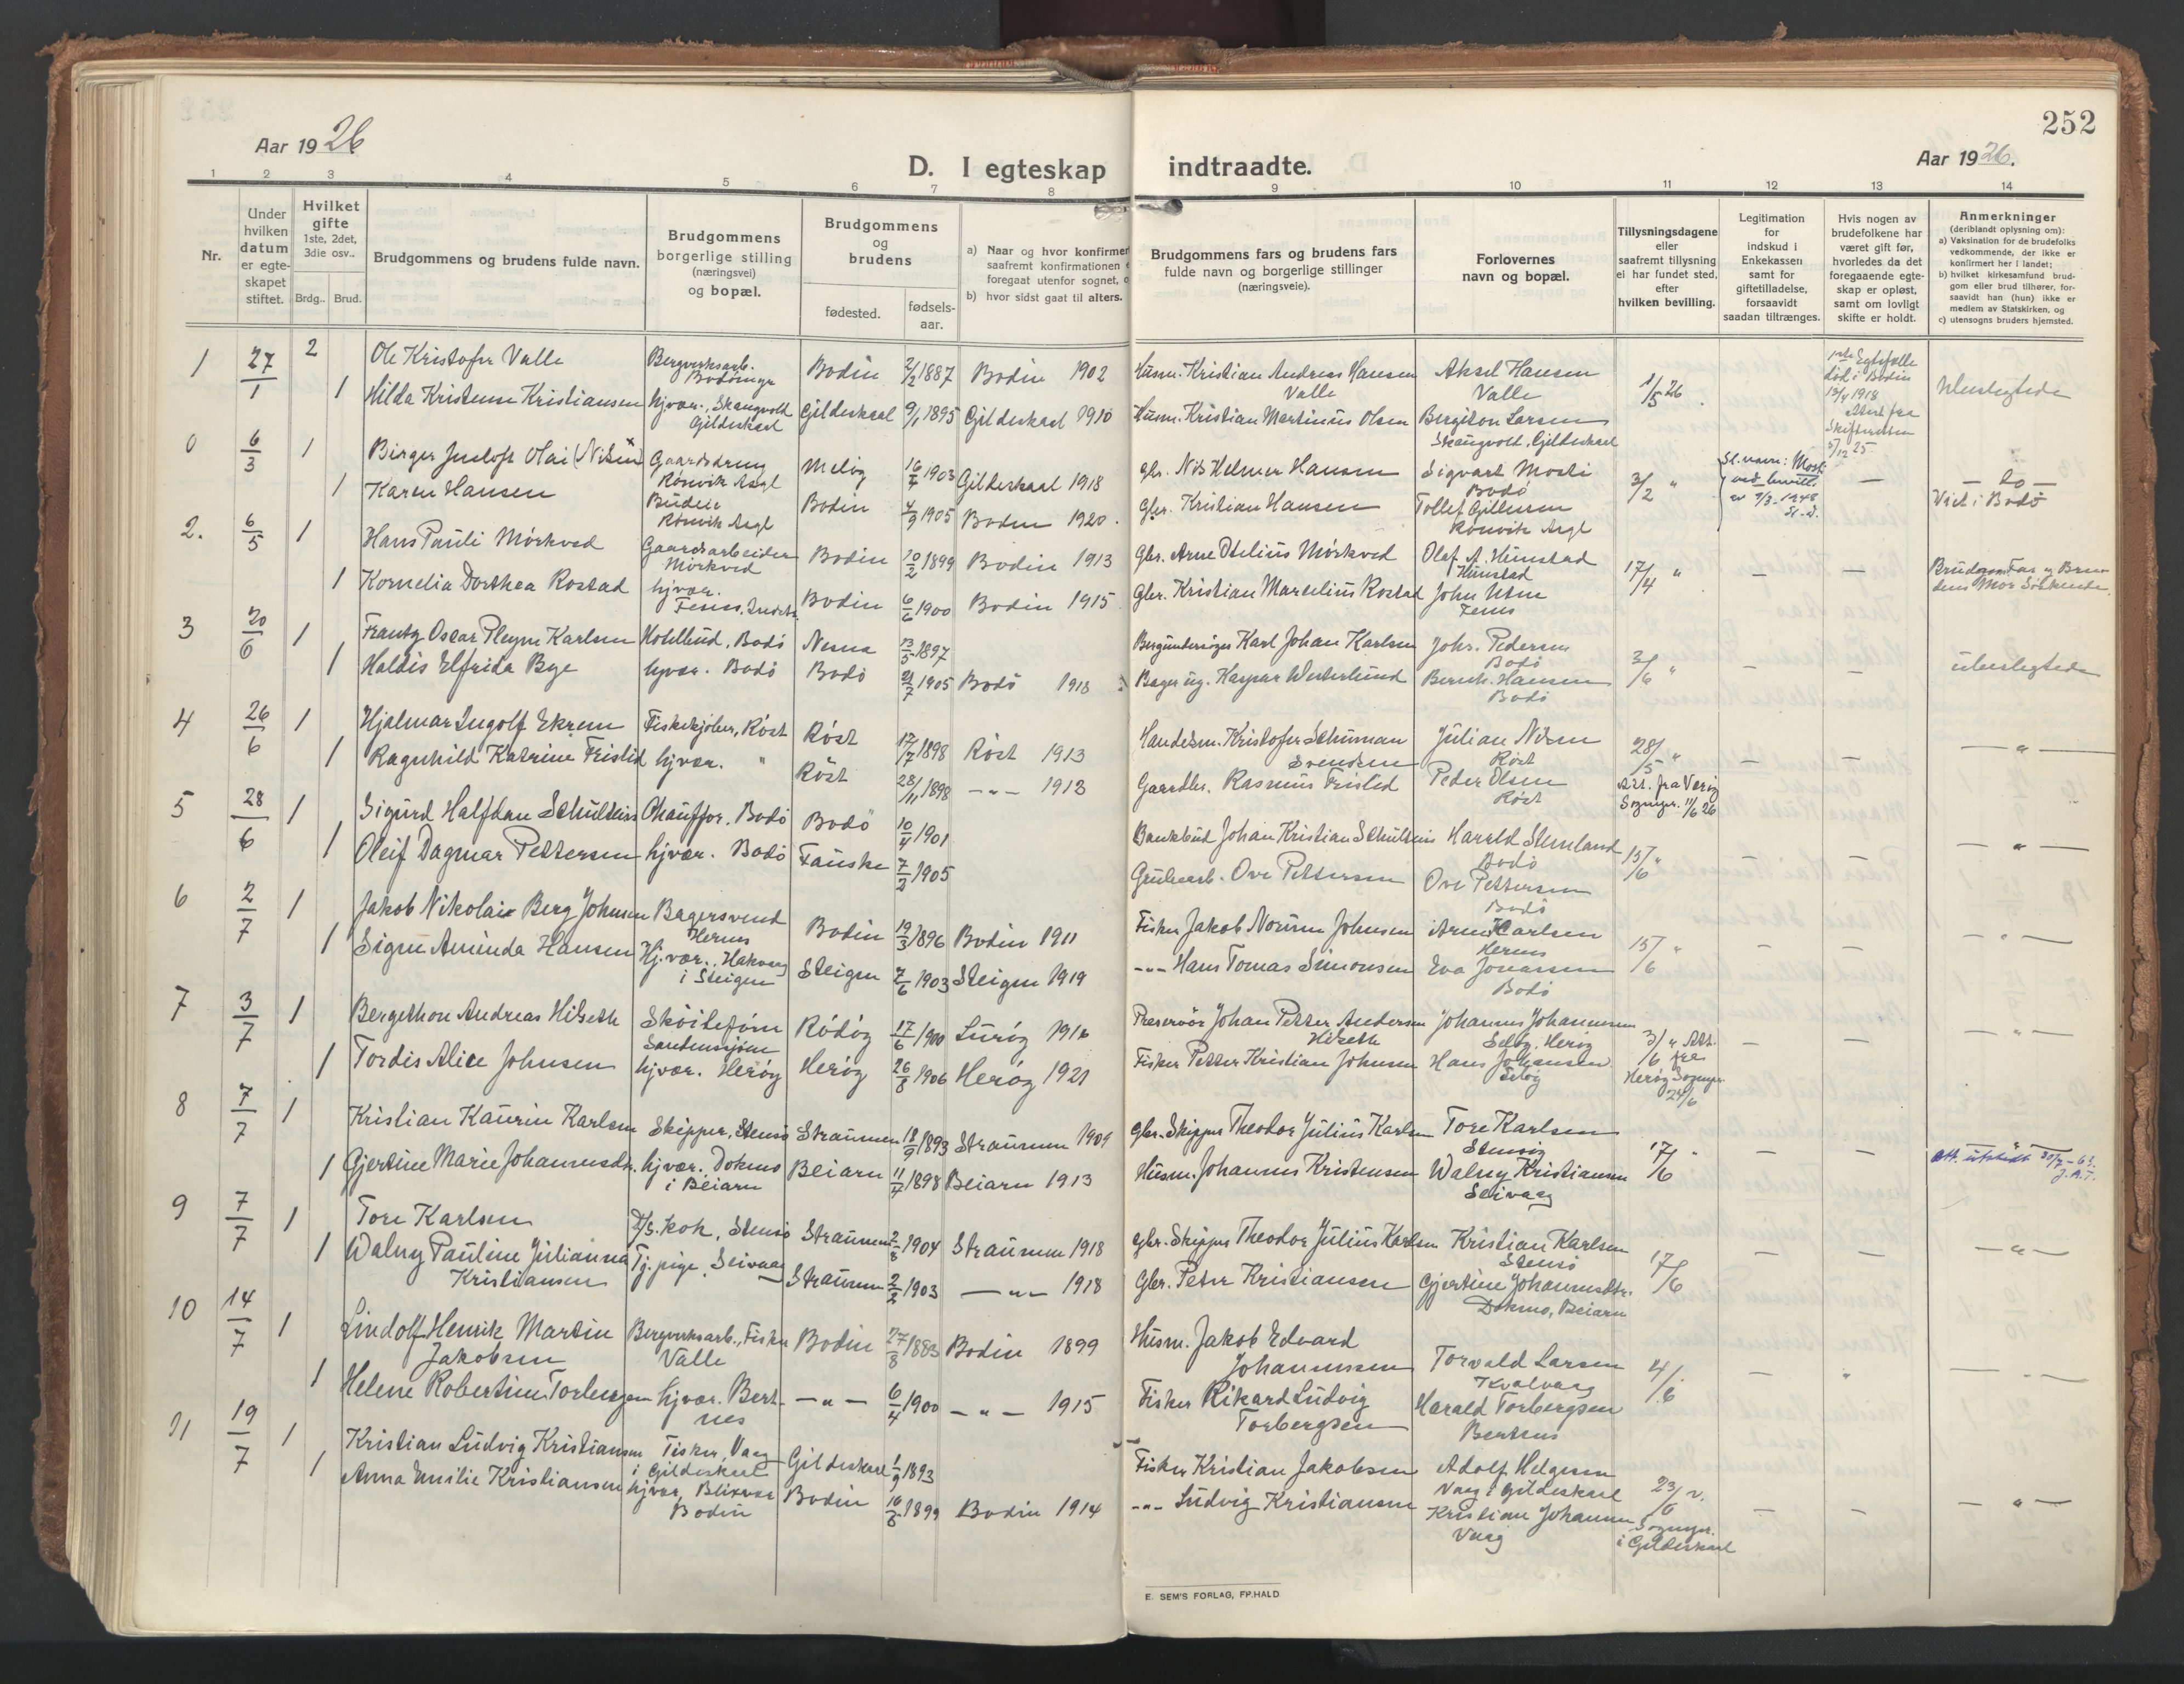 252
Aar 1926
Aar 1926.
D. I egteskap indtraadte.
1 2 3 4 5 6 7 8 9 10 11 12 13 14
Nr.
Under hvilken datum er egte-skapet stiftet.
Hvilket gifte 1ste, 2det, 3die osv..
Brdg.. Brud.
Brudgommens og brudens fulde navn.
Brudgommens borgerlige stilling (næringsvei) og bopæl.
Brudgommens og brudens
fødested. fødsels-aar.
a) Naar og hvor konfirmer
saafremt konfirmationen
foregaat utenfor sognet,
b) hvor sidst gaat til alters.
Brudgommens fars og brudens fars
fulde navn og borgerlige stillinger
(næringsveie).
Forlovernes
navn og bopæl.
Tillysningsdagene
eller
saafremt tillysning
ei har fundet sted,
efter
hvilken bevilling.
Legitimation
for
indskud i
Enkekassen
samt for
giftetilladelse,
forsaavidt
saadan tiltrænges.
Hvis nogen av
brudefolkene har
været gift før,
hvorledes da det
foregaaende egte-
skap er opløst,
samt om lovligt
skifte er holdt.
Anmerkninger
(deriblandt oplysning om):
a) Vaksination for de brudefolks
vedkommende, der ikke er
konfirmert her i landet;
b) hvilket kirkesamfund brud-
gom eller brud tilhører, for-
saavidt han (hun) ikke er
medlem av Statskirken, og
c) utensogns bruders hjemsted.
1 27/1 2 Ole Kristofer Valle Bergverksarb. Bodin 2/2 1887 Bodin 1902 Husm. Kristian Andreas Hansen Valle Aksel Hansen Valle 1/5 26 død i Bodin 1918 Ubeslegtede
1 Hilda Kristense Kristiansen hjvær., Skaugvold Gildeskaal Gildeskaal 9/1 1895 Gildeskaal 1910 Husm. Kristian Martinius Olsen Bergiton Larsen Skaugvold, Gildeskaal
0 6/3 1 Birger Justoft Olai (Nilsen) Gaardsdreng Rønvik Asyl Meløy 16/7 1903 Gildeskaal 1918 Gbr. Nils Helmer Hansen Sigvart Mosti Bodø 3/2 " Sl. navn: Mosti ved bevill. av 9/3-1948 — Do — Viet i Bodø
1 Karen Hansen Budeie Rønvik Asyl Bodin 4/9 1905 Bodin 1920. Gbr. Kristian Hansen Tollef Gillesen Rønvik Asyl
2. 6/5 1 Hans Pauli Mørkved Gaardsarbeider Mørkved Bodin 10/2 1899 Bodin 1913 Gbr. Arne Otelius Mørkved Olaf A. Hunstad Hunstad 17/4 " — — Brudgom. Far og Bru-dens Mor Søskende.
1 Kornelia Dorthea Rostad hjvær. Bodin 6/6 1900 Bodin 1915 Gbr. Kristian Marselius Rostad John
3 20/6 1 Frantz Oscar Pleym Karlsen Hotelbud, Bodø Nesna 13/5 1897 Karl Johan Karlsen Johs. Pedersen Bodø 3/6 " — — ubeslegtede
1 Haldis Elfrida Bye hjvær. Bodø Bodø 21/7 1905 Bodø 1918 Bager ug. Kaspar Westerlund Bernh. Hansen Bodø
4 26/6 1 Hjalmar Ingolf Ekrem Fiskekjøber, Røst Røst 17/7 1898 Røst 1913 Handelsm. Kristofer Schuman Svendsen Julian Nilsen Røst 28/5 " — — — " —
1 Ragnhild Katrine Fristed hjvær. " Røst 28/11 1898 — " — 1913 Gaardbr. Rasmus Fristed Peder Olsen Røst Att. fra Værøy Sogneprest 11/6 26
5 28/6 1 Sigurd Halfdan Schultzis Chauffør. Bodø Bodø 10/4 1901 Bankbud Johan Kristian Schultzis Harald Stemland Bodø 15/6 " — — — " —
1 Oleif Dagmar Pettersen hjvær. Bodø Fauske 7/2 1905 Grubearb. Ove Pettersen Ove Pettersen Bodø
6 2/7 1 Jakob Nikolai Berg Johnsen Bagersvend Hernes Bodin 19/3 1896 Bodin 1911 Fisker Jakob Johnsen Arne Carlsen Hernes 15/6 " — — — " —
1 Signe Aminda Hansen Hj.vær., Hakvaag i Steigen Steigen 7/6 1903 Steigen 1919 — " — Hans Tomas Simonsen Eva Jonassen Bodø
7 3/7 1 Bergethon Andreas Hilseth Sandnessjøen Rødøy 17/6 1900 Lurøy 1916 Preservør Johan Petter Andersen Hilseth Johannes Johannessen Seløy, Herøy 3/6 " Att. fra Herøy Sogneprest 24/6 — — — " —
1 Tordis Alice Johnsen hjvær. Herøy Herøy 26/8 1906 Herøy 1921 Fisker Petter Kristian Johnsen Hans Johansen Seløy
8 7/7 1 Kristian Kaurin Karlsen Skipper, Stensø Straumen 18/9 1893 Straumen 1909 Gbr. Skipper Theodor Julius Karlsen Tore Karlsen 17/6 " — — Att. utstedt 30/7-63. J.A.T.
1 Gjertine Marie Johannesdtr. hjvær. Dokmo i Beiarn Beiarn 11/4 1898 Beiarn 1913 Husm. Johannes Kristensen Walny Kristiansen Seivaag
9 7/7 1 Tore Karlsen D/S. kok, Stensø Straumen 2/8 1904 Straumen 1918 Gbr. Skipper Theodor Julius Karlsen Kristian Karlsen Stensø 17/6 — — — " —
1 Walny Pauline Julianna Kristiansen Tj. pige, Seivaag Straumen 2/2 1903 — " — 1918 Gbr. Peter Kristiansen Gjertine Johannesdtr. Dokmo, Beiarn
10 14/7 1 Lindolf Henrik Martin Jakobsen Bergverksarb., Fisker Valle Bodin 27/8 1883 Bodin 1899 Husm. Jakob Edvard Johannessen Torvald Larsen Kvalvaag 4/6 — " — " —
1 Helene Robertine Torbergsen hjvær. Bertnes — " — 6/4 1900 — " — 1915 Fisker Rikard Ludvig Torbergsen Harald Torbergsen Bertnes
11 19/7 1 Kristian Ludvig Kristiansen Fisker, Vaag i Gildeskaal Gildeskaal 1/9 1893 Fisker Kristian Jakobsen Adolf Helgesen Vaag i Gildeskaal 23/6 v. Sogneprest. i Gildeskaal — — — " —
1 Anna Emilie Kristiansen hjvær, Blixvær Bodin Bodin 16/6 1899 Bodin 1914 — " — Ludvig Kristiansen Kristian Johansen Vaag
E. SEM'S FORLAG, FP.HALD